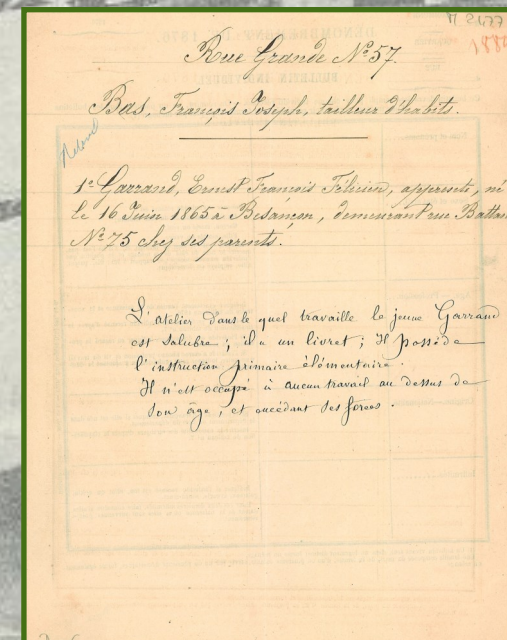 M 2477
188
Rue Grande Nº 57.
Bas, François Joseph, tailleur d'habits.
Relevé
1º Garrand, Ernest François Félicien, apprenti, né
le 16 Juin 1865 à Besançon, demeurant rue Battan
Nº 75 chez ses parents.
L'atelier dans le quel travaille le jeune Garrand
est salubre ; il a un livret ; Il possède
l'instruction primaire élémentaire.
Il n'est occupé à aucun travail au dessus de
son âge, et excédant ses forces.